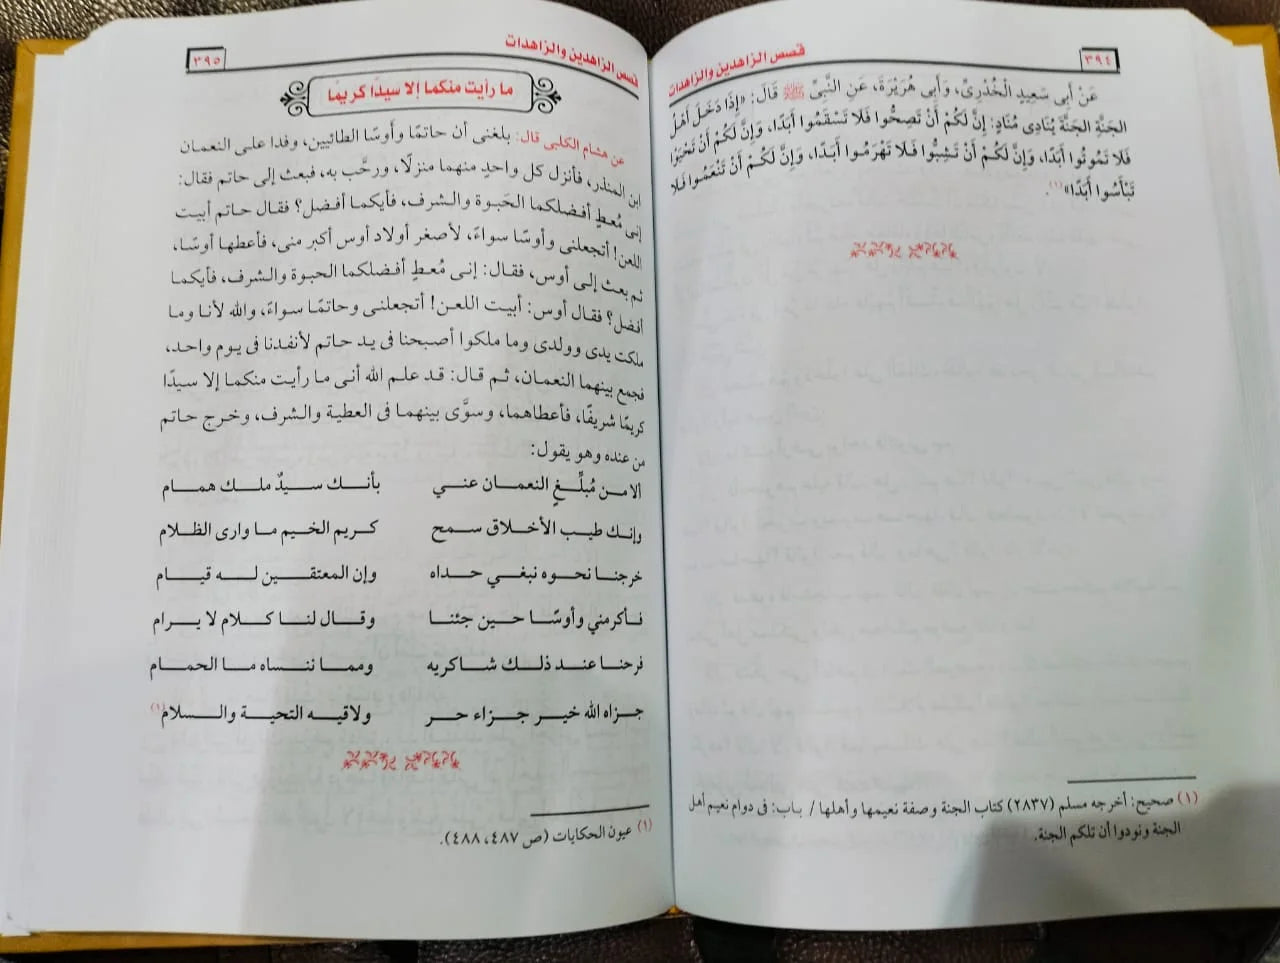 ٣٩٤
قصص الزاهدين والزاهدات
عَنْ أَبِى سَعِيدٍ الْخُدْرِىِّ، وَأَبِى هُرَيْرَةَ، عَنِ النَّبِىِّ ﷺ قَالَ: «إِذَا دَخَلَ أَهْلُ
الجَنَّةِ الجَنَّةَ يُنَادِى مُنَادٍ: إِنَّ لَكُمْ أَنْ تَصِحُّوا فَلَا تَسْقَمُوا أَبَدًا، وَإِنَّ لَكُمْ أَنْ تَحْيَوْا
فَلَا تَمُوتُوا أَبَدًا، وَإِنَّ لَكُمْ أَنْ تَشِبُّوا فَلَا تَهْرَمُوا أَبَدًا، وَإِنَّ لَكُمْ أَنْ تَنْعَمُوا فَلَا
تَبْأَسُوا أَبَدًا»(١).
(١) صحيح: أخرجه مسلم (٢٨٣٧) كتاب الجنة وصفة نعيمها وأهلها / باب: فى دوام نعيم أهل
الجنة ونودوا أن تلكم الجنة.
قصص الزاهدين والزاهدات
٣٩٥
ما رأيت منكما إلا سيدًا كريمًا
عن هشام الكلبى قال: بلغنى أن حاتمًا وأوسًا الطائيين، وفدا على النعمان
ابن المنذر، فأنزل كل واحدٍ منهما منزلًا، ورحَّب به، فبعث إلى حاتم فقال:
إنى مُعطٍ أفضلكما الحَبوة والشرف، فأيكما أفضل؟ فقال حاتم أبيت
اللعن! أتجعلنى وأوسًا سواءً، لأصغر أولاد أوس أكبر منى، فأعطها أوسًا،
ثم بعث إلى أوس، فقال: إنى مُعطٍ أفضلكما الحبوة والشرف، فأيكما
أفضل؟ فقال أوس: أبيت اللعن! أتجعلنى وحاتمًا سواءً، والله لأنا وما
ملكت يدى وولدى وما ملكوا أصبحنا فى يد حاتم لأنفدنا فى يوم واحد،
فجمع بينهما النعمان، ثم قال: قد علم الله أنى ما رأيت منكما إلا سيدًا
كريمًا شريفًا، فأعطاهما، وسوَّى بينهما فى العطية والشرف، وخرج حاتم
من عنده وهو يقول:
ألا من مُبلِّغٍ النعمان عني بأنك سيدٌ ملك همام
وإنك طيب الأخلاق سمح كريم الخيم ما وارى الظلام
خرجنا نحوه نبغي حداه وإن المعتقين له قيام
فأكرمني وأوسًا حين جئنا وقال لنا كلام لا يرام
فرحنا عند ذلك شاكريه ومما ننساه ما الحمام
جزاه الله خير جزاء حر ولاقيه التحية والسلام(١)
(١) عيون الحكايات (ص ٤٨٧، ٤٨٨).